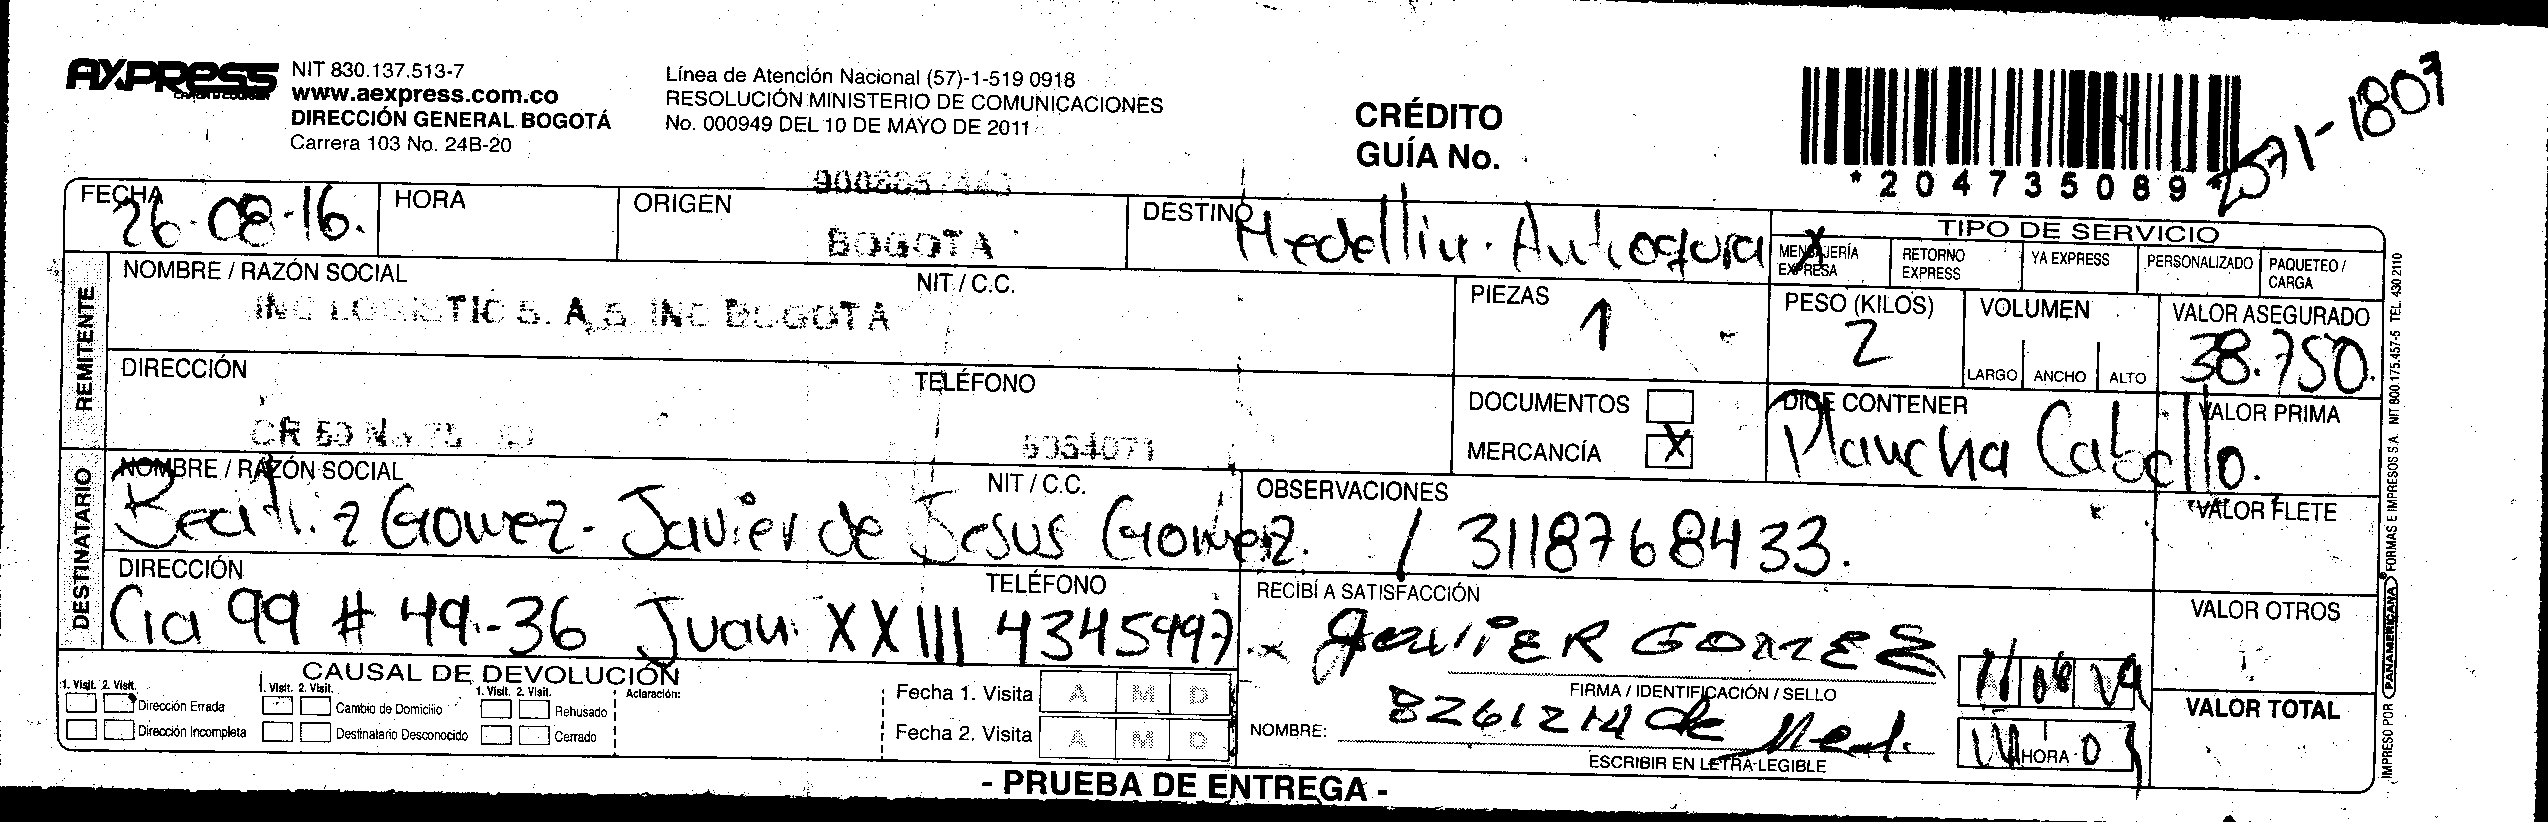 AXPRESS
NIT 830.137.513-7
www.aexpress.com.co
DIRECCIÓN GENERAL BOGOTÁ
Carrera 103 No. 24B-20
Línea de Atención Nacional (57)-1-519 0918
RESOLUCIÓN MINISTERIO DE COMUNICACIONES
No. 000949 DEL 10 DE MAYO DE 2011
CRÉDITO
GUÍA No.
*204735089*
2571-1807
FECHA 26-08-16.
HORA
ORIGEN BOGOTA
DESTINO Medellin. Antioquia
TIPO DE SERVICIO
MENSAJERÍA EXPRESA X
RETORNO EXPRESS
YA EXPRESS
PERSONALIZADO
PAQUETEO / CARGA
REMITENTE
NOMBRE / RAZÓN SOCIAL
NIT / C.C.
INC LOGISTIC S. A S INC BOGOTA
PIEZAS 1
PESO (KILOS) 2
VOLUMEN
LARGO ANCHO ALTO
VALOR ASEGURADO 38.750.
DIRECCIÓN
TELÉFONO
CR 50 No 75
DOCUMENTOS
MERCANCÍA X
DICE CONTENER
Plancha Cabello.
VALOR PRIMA
DESTINATARIO
NOMBRE / RAZÓN SOCIAL
NIT / C.C.
Beatriz Gomez - Javier de Jesus Gomez.
OBSERVACIONES
/ 3118768433.
VALOR FLETE
DIRECCIÓN
TELÉFONO
Cra 99 # 49-36 Juan XXIII 4345997
RECIBÍ A SATISFACCIÓN
x JAVIER GOMEZ
FIRMA / IDENTIFICACIÓN / SELLO
8261214 de Med.
NOMBRE:
ESCRIBIR EN LETRA LEGIBLE
HORA
VALOR OTROS
VALOR TOTAL
CAUSAL DE DEVOLUCIÓN
1. Visit. 2. Visit.
Dirección Errada
Dirección Incompleta
1. Visit. 2. Visit.
Cambio de Domicilio
Destinatario Desconocido
1. Visit. 2. Visit.
Rehusado
Cerrado
Aclaración:
Fecha 1. Visita A M D
Fecha 2. Visita A M D
- PRUEBA DE ENTREGA -
IMPRESO POR PANAMERICANA FORMAS E IMPRESOS S.A. NIT 800.175.457-5 TEL. 430 2110